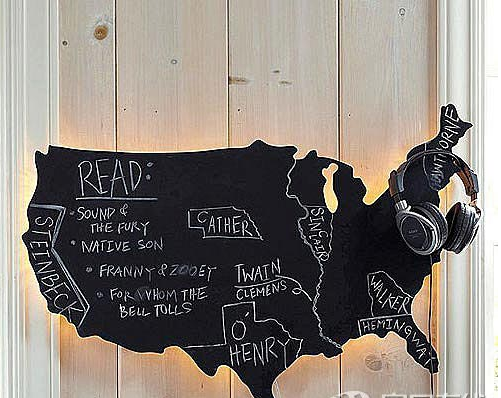 READ:
• SOUND &
THE FURY
• NATIVE SON
• FRANNY & ZOOEY
• FOR WHOM THE
BELL TOLLS
STEINBECK
CATHER
TWAIN
CLEMENS
O'
HENRY
SINCLAIR
HAWTHORNE
WALKER
HEMINGWAY